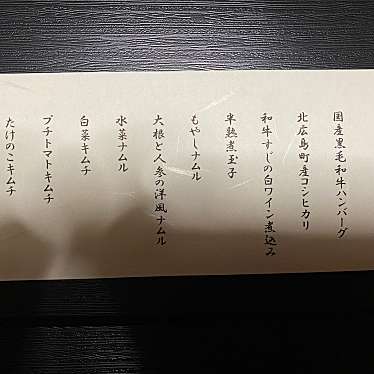 国産黒毛和牛ハンバーグ
北広島町産コシヒカリ
和牛すじの白ワイン煮込み
半熟煮玉子
もやしナムル
大根と人参の洋風ナムル
水菜ナムル
白菜キムチ
プチトマトキムチ
たけのこキムチ